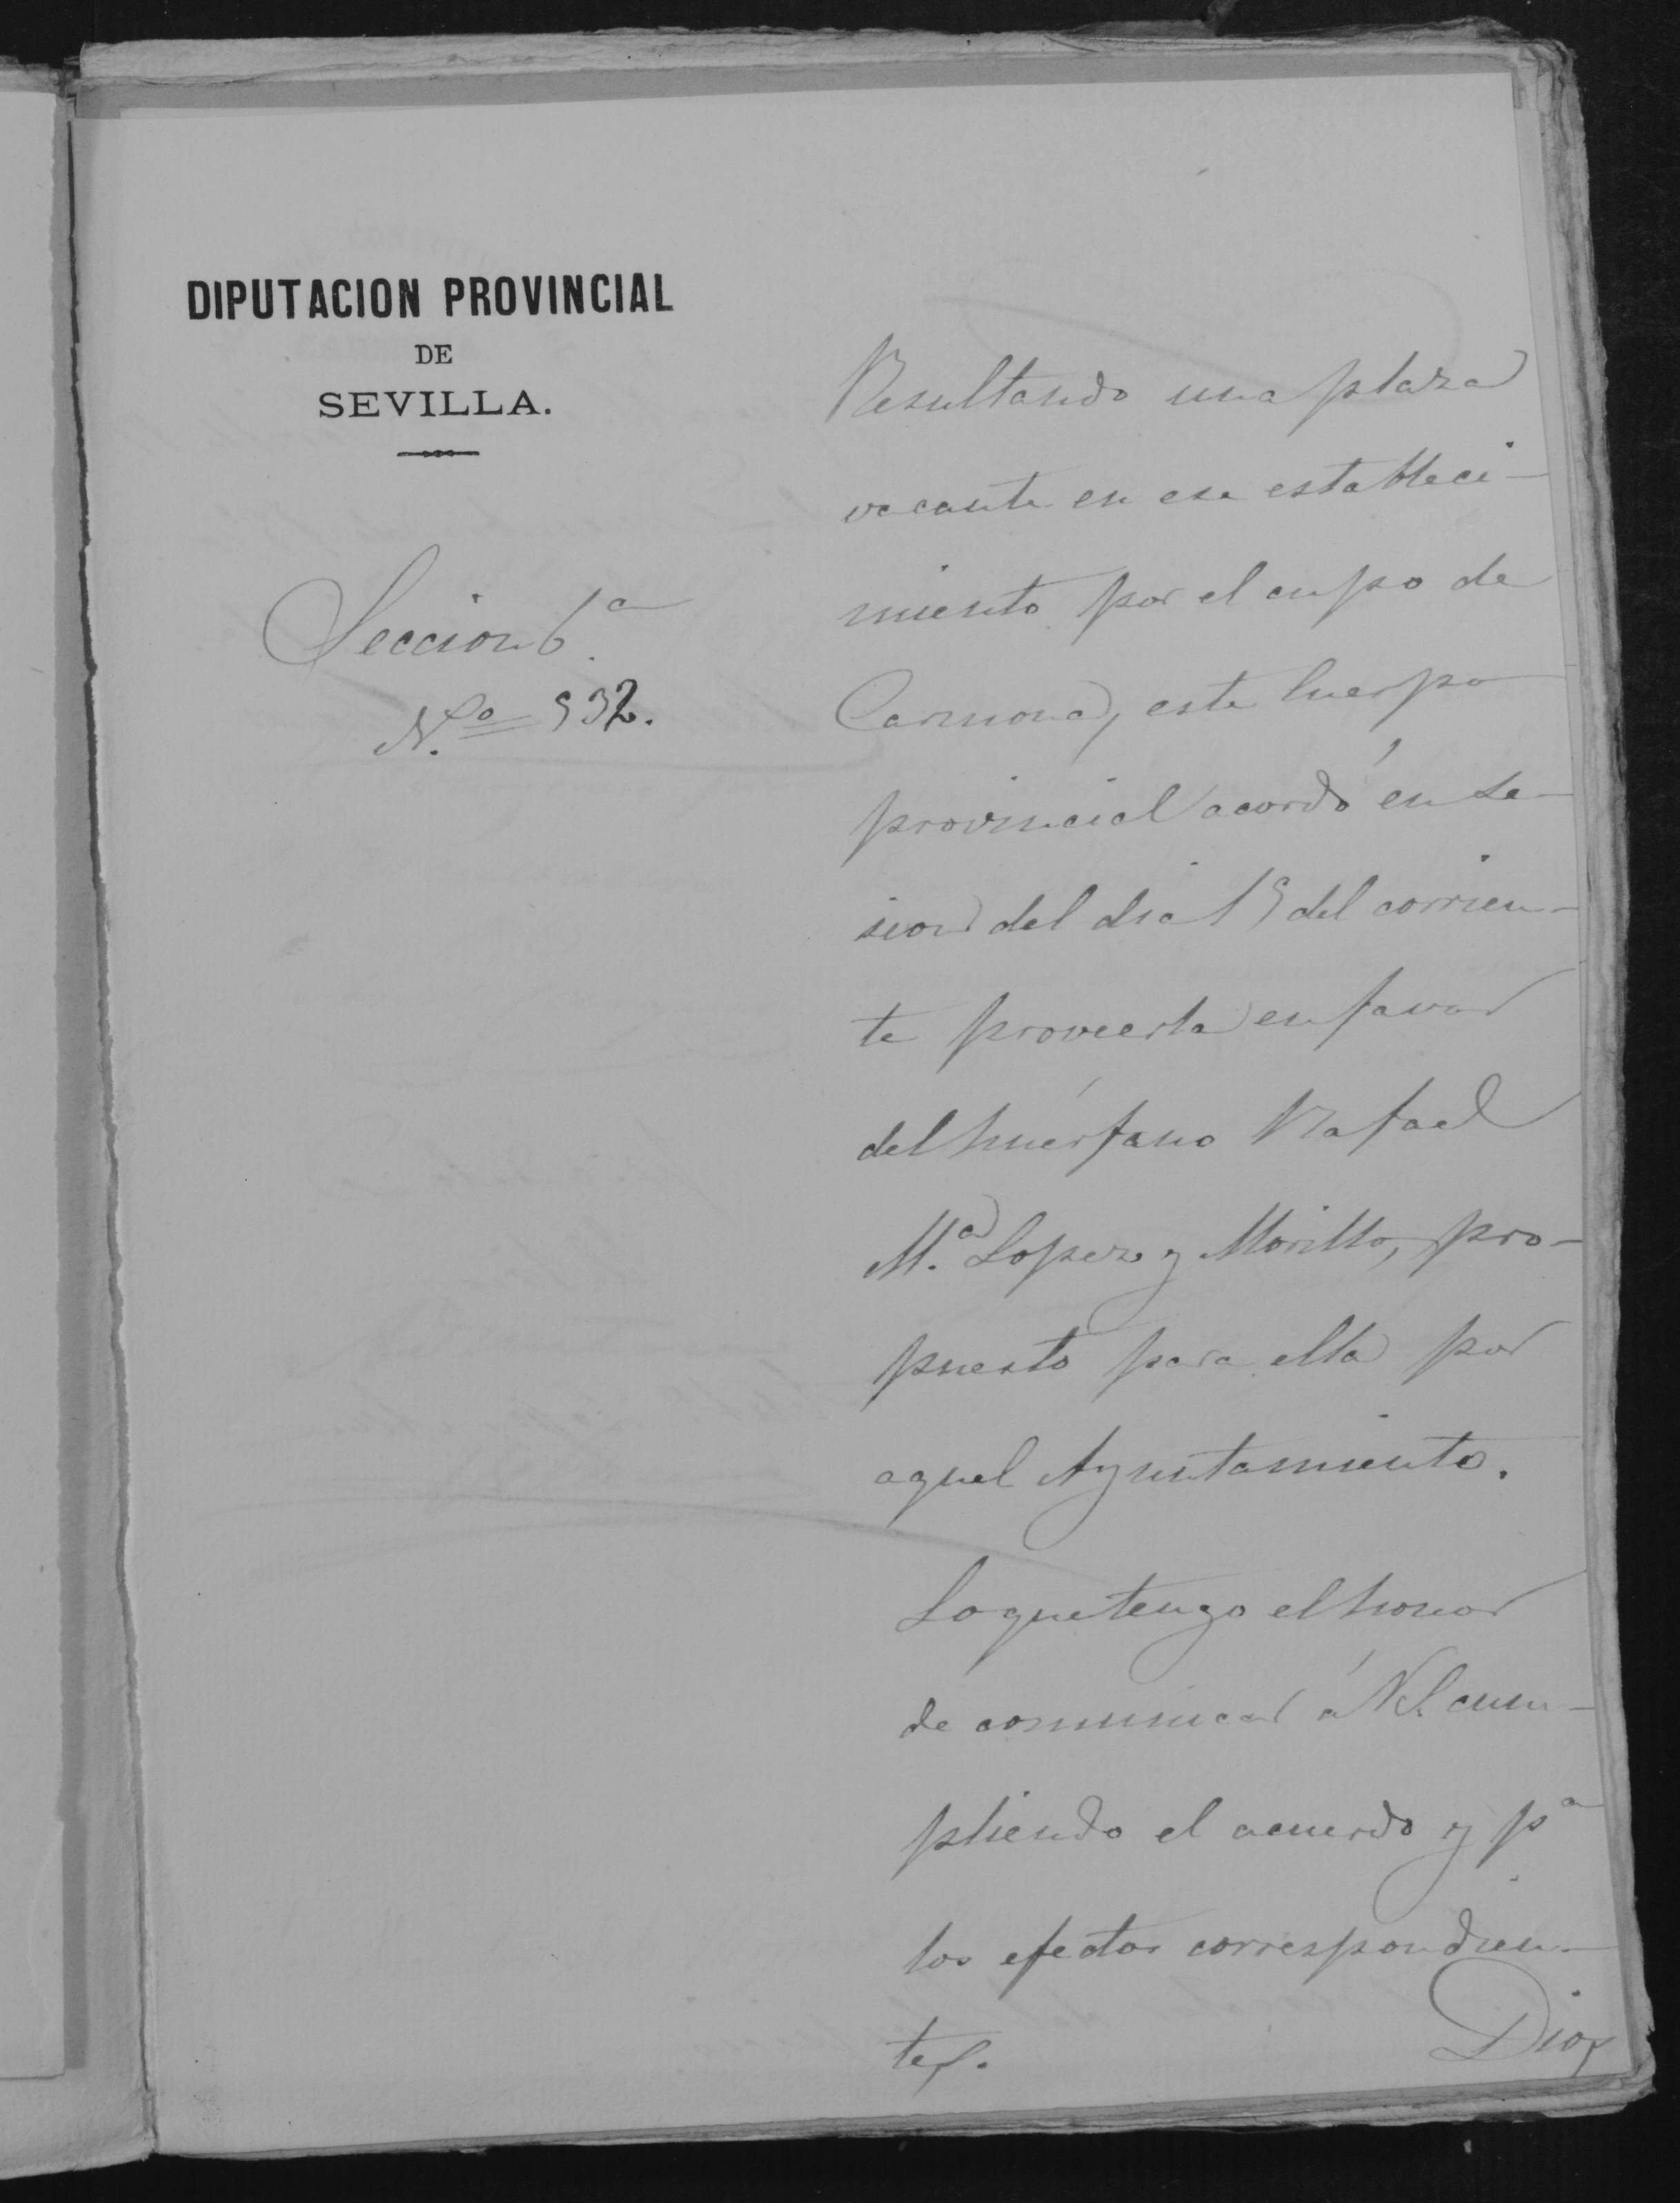 DIPUTACION PROVINCIAL
DE
SEVILLA.
Seccion 6.ª
N.º 932.
Resultando una plaza
vacante en ese estableci-
miento por el cupo de
Carmona, este Cuerpo
provincial acordó en se-
sion del dia 19 del corrien-
te proveerla en favor
del huérfano Rafael
M.ª Lopez y Morillo, pro-
puesto para ella por
aquel Ayuntamiento.
Lo que tengo el honor
de comunicar á V.S. cum-
pliendo el acuerdo y pª
los efectos correspondien-
tes.
Dios